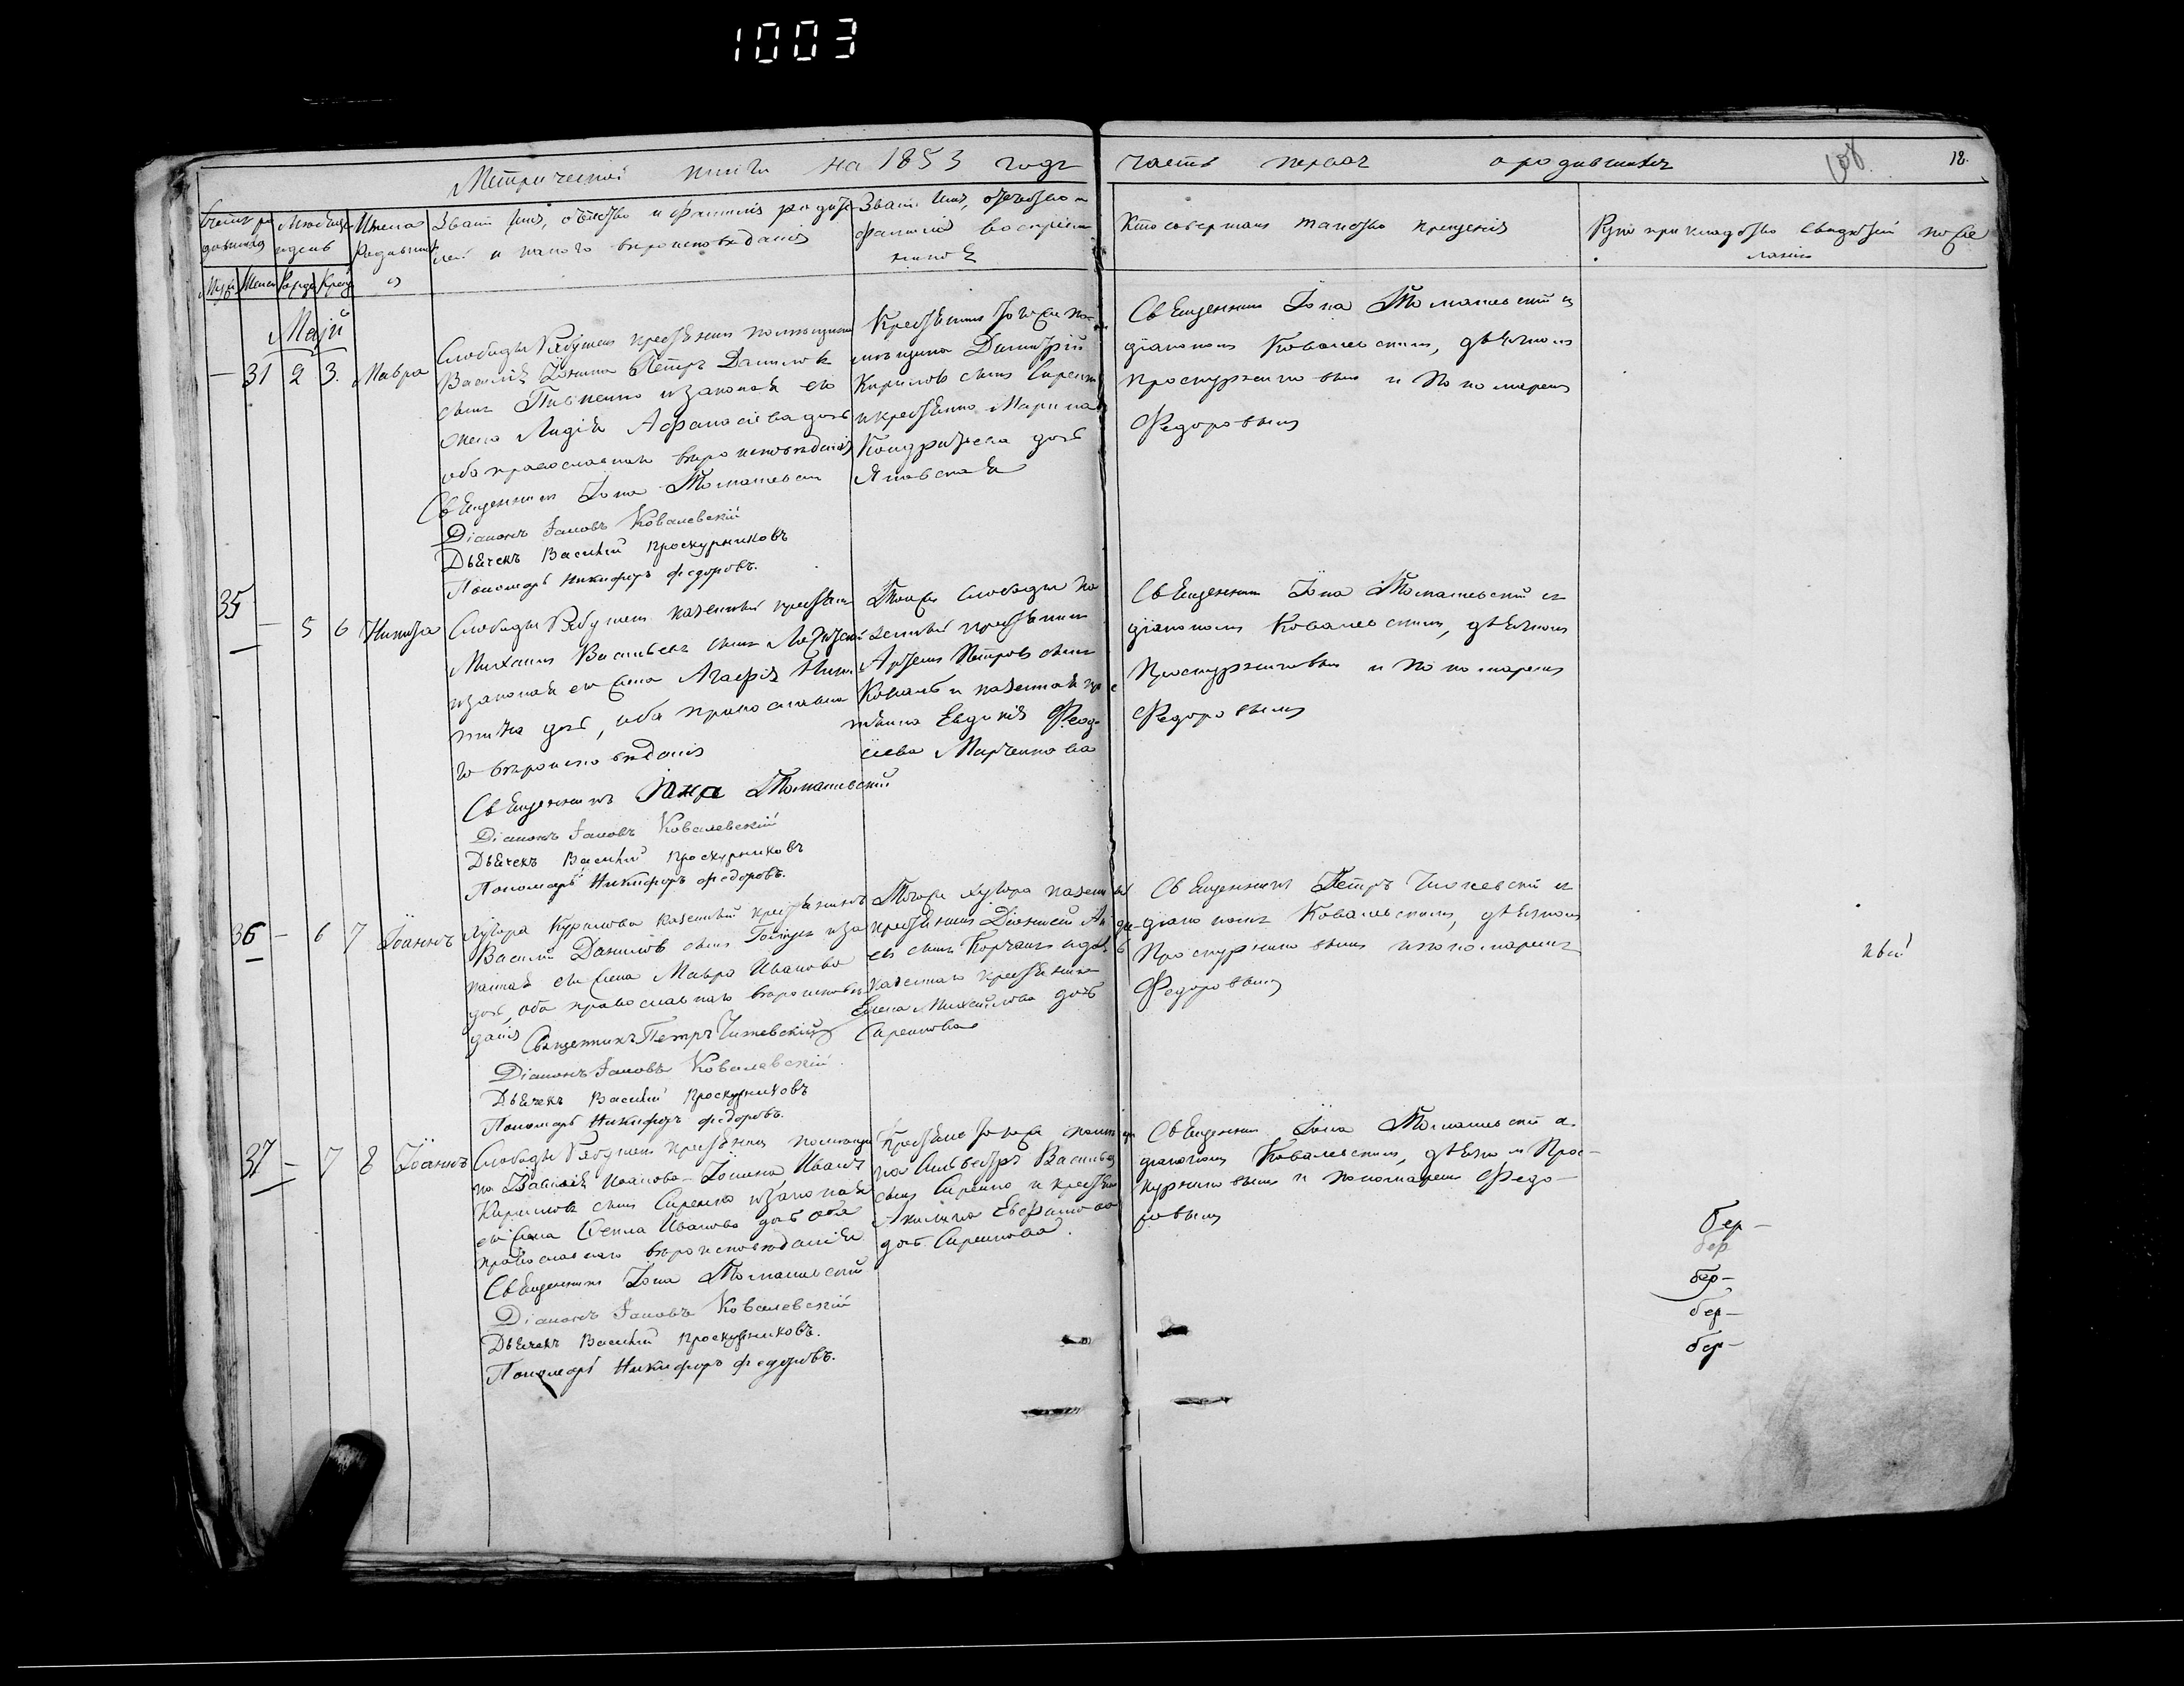 1003
Метрической книги на 1853 годъ часть первая о родившихся
108. 12.
Счетъ ро
дившихся
Мужс Женс
Месяцъ
и день
Рожд Крещ
Имена
Родивших
ся
Званіе имя, отчество и фамилія родите
лей и какого вероисповеданія
Званіе имя, отчество и
фамилія воспріем
никовъ
Кто совершалъ таинство крещенія
Маіи
— 31 2 3. Мавра
Слободы Рябушекъ крестьянин помещицы
Василій Іонина Петръ Данилов
сынъ Пивненко и законная его
жена Лидія Афанасіева дочь
оба православнаго вероисповеданія
Священникъ Іона Томашевскій
Діаконъ Іаковъ Ковалевскій
Дьячекъ Василій Проскурниковъ
Пономарь Никифоръ Федоровъ.
Крестьянинъ тогоже по-
мещика Димитрій
Кирилов сынъ Сиренко
и крестьянка Марина
Кондратьева дочь
Священникъ Іона Томашевскій съ
діакономъ Ковалевскимъ, дьячкомъ
Проскурниковымъ и пономаремъ
Федоровымъ
35 — 5 6 Никита
Слободы Рябушекъ казенный крестьян
Михаилъ Васильевъ сынъ
и законная его жена Агафія Ники
тина дочь, оба православна
го вероисповеданія
Священникъ Іона Томашевскій
Діаконъ Іаковъ Ковалевскій
Дьячекъ Василій Проскурниковъ
Пономарь Никифоръ Федоровъ.
Тойже слободы ка
зенный крестьянин
Артемъ Петровъ сынъ
Коваль и казенная кре
стьянка Евдокія Феод-
Марченкова
Священникъ Іона Томашевскій съ
діакономъ Ковалевскимъ, дьячкомъ
Проскурниковымъ и пономаремъ
Федоровымъ
36 — 6 7 Іоаннъ
Хутора Курилова казенный крестьянинъ
Василій Даниловъ сынъ и за
конная его жена Мавра Иванова
дочь, оба православнаго вероисповѣ
данія
Священникъ Петръ Чижевскій
Діаконъ Іаковъ Ковалевскій
Дьячекъ Василій Проскурниковъ
Пономарь Никифоръ Федоровъ.
Тогоже хутора казенный
крестьянинъ Діонисій
казенная крестьянка
Елена Михайлова дочь
Сиренкова
Священникъ Петръ Чижевскій съ
діакономъ Ковалевскимъ, дьячкомъ
Проскурниковымъ и пономаремъ
Федоровымъ
37 — 7 8 Іоаннъ
Слободы Рябушекъ крестьянинъ помещи
Василія Иванова Іонина, Иванъ
Кириловъ сынъ Сиренко и законная
его жена Иванова дочь оба
православнаго вероисповеданія
Священникъ Іона Томашевскій
Діаконъ Іаковъ Ковалевскій
Дьячекъ Василій Проскурниковъ.
Пономарь Никифоръ Федоровъ.
Крестьяне тогоже помещи
ка Сильвестръ Васильев
сынъ Сиренко и крестьян
Акилина Евфимова
дочь Сиренкова.
Священникъ Іона Томашевскій съ
діакономъ Ковалевскимъ, дьячкомъ Прос-
курниковымъ и пономаремъ Федо-
ровымъ
бер —
бер
бер —
бер —
бер —